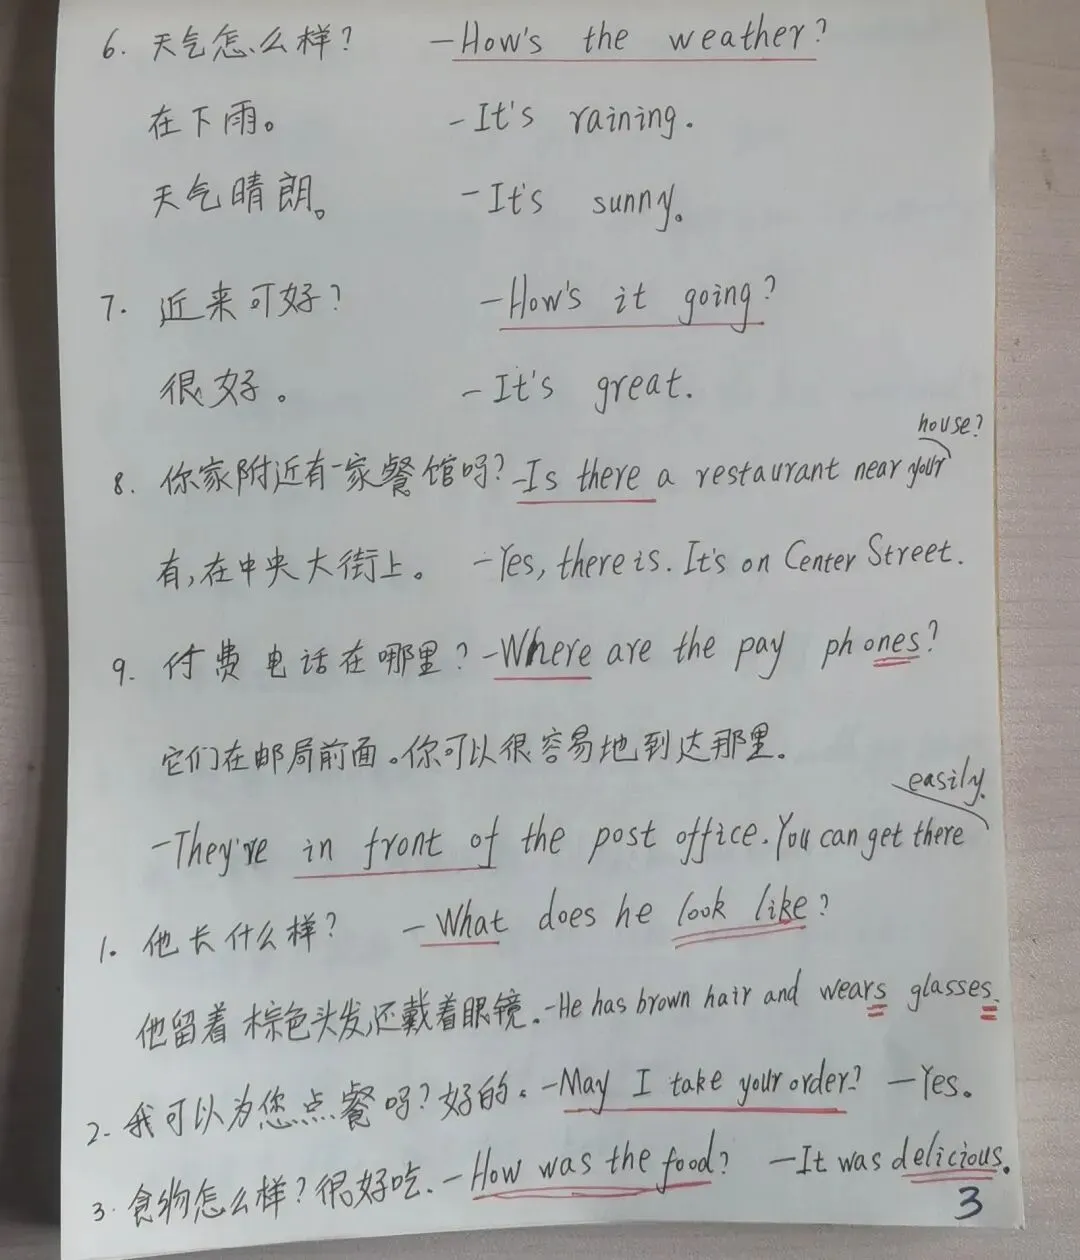 6. 天气怎么样? -How's the weather?
在下雨。 -It's raining.
天气晴朗。 -It's sunny.
7. 近来可好? -How's it going?
很好。 -It's great.
8. 你家附近有一家餐馆吗? -Is there a restaurant near your house?
有,在中央大街上。 -Yes, there is. It's on Center Street.
9. 付费电话在哪里? -Where are the pay phones?
它们在邮局前面。你可以很容易地到达那里。
-They're in front of the post office. You can get there easily.
1. 他长什么样? -What does he look like?
他留着棕色头发,还戴着眼镜. -He has brown hair and wears glasses.
2. 我可以为您点餐吗?好的。 -May I take your order? -Yes.
3. 食物怎么样?很好吃. -How was the food? -It was delicious.
3